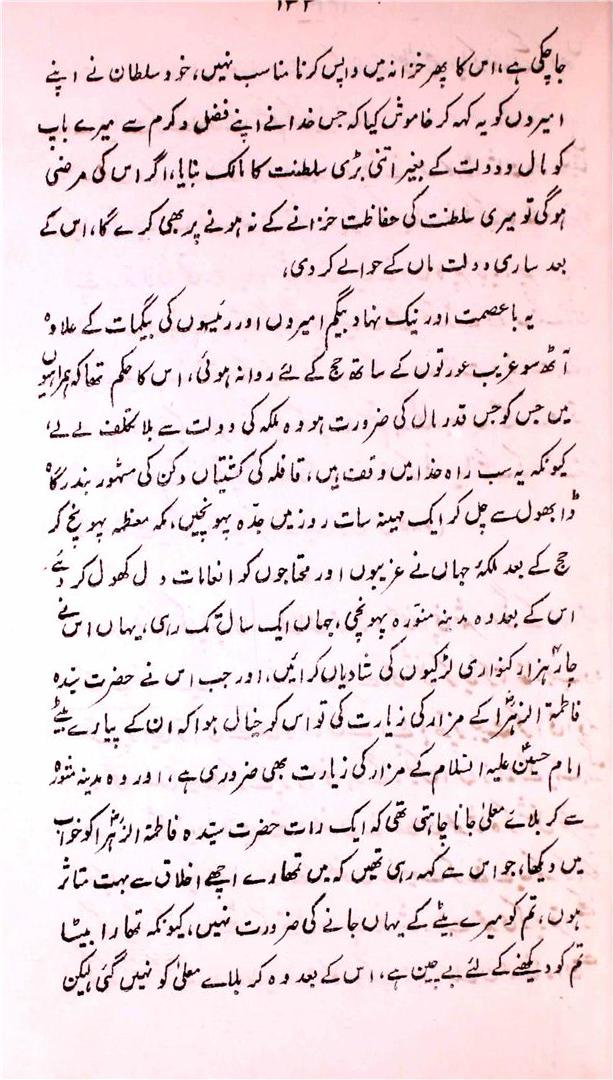 جاچکی ہے، اس کا پھر خزانہ میں واپس کرنا مناسب نہیں، خود سلطان نے اپنے
امیروں کو یہ کہہ کر خاموش کیا کہ جس خدا نے اپنے فضل و کرم سے میرے باپ
کو مال و دولت کے بغیر اتنی بڑی سلطنت کا مالک بنایا، اگر اس کی مرضی
ہوگی تو میری سلطنت کی حفاظت خزانے کے نہ ہونے پر بھی کرے گا، اس کے
بعد ساری دولت ماں کے حوالے کر دی،
یہ با عصمت اور نیک نہاد بیگم امیروں اور رئیسوں کی بیگمات کے علاوہ
آٹھ سو غریب عورتوں کے ساتھ حج کے لئے روانہ ہوئی، اس کا حکم تھا کہ ہمراہیوں
میں جس کو جس قدر مال کی ضرورت ہو وہ ملکہ کی دولت سے بلا تکلف لے لے،
کیونکہ یہ سب راہ خدا میں وقف ہیں، قافلہ کی کشتیاں دکن کی مشہور بندرگاہ
ڈابھول سے چل کر ایک مہینہ سات روز میں جدّہ پہونچیں، مکہ معظمہ پہونچ کر
حج کے بعد ملکۂ جہاں نے غریبوں اور محتاجوں کو انعامات دل کھول کر دئے،
اس کے بعد وہ مدینہ منوّرہ پہونچی، جہاں ایک سال تک رہی، یہاں اس نے
چار ہزار کنواری لڑکیوں کی شادیاں کرائیں، اور جب اس نے حضرت سیّدہ
فاطمۃ الزہراؓ کے مزار کی زیارت کی تو اس کو خیال ہوا کہ ان کے پیارے بیٹے
امام حسینؓ علیہ السّلام کے مزار کی زیارت بھی ضروری ہے، اور وہ مدینہ منوّرہ
سے کربلائے معلیٰ جانا چاہتی تھی کہ ایک رات حضرت سیّدہ فاطمۃ الزہراؓ کو خواب
میں دیکھا، جو اس سے کہہ رہی تھیں کہ میں تمھارے اچھے اخلاق سے بہت متاثر
ہوں، تم کو میرے بیٹے کے یہاں جانے کی ضرورت نہیں، کیونکہ تمھارا بیٹا
تم کو دیکھنے کے لئے بے چین ہے، اس کے بعد وہ کربلائے معلیٰ کو نہیں گئی لیکن